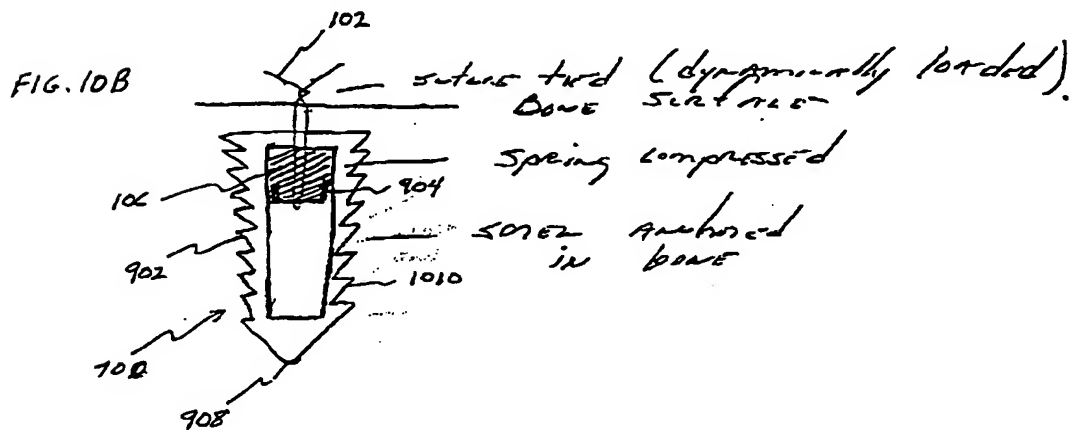 102
FIG. 10B
suture tied (dynamically loaded).
Bone surface
spring compressed
106
904
anchored
in bone
902
1010
908